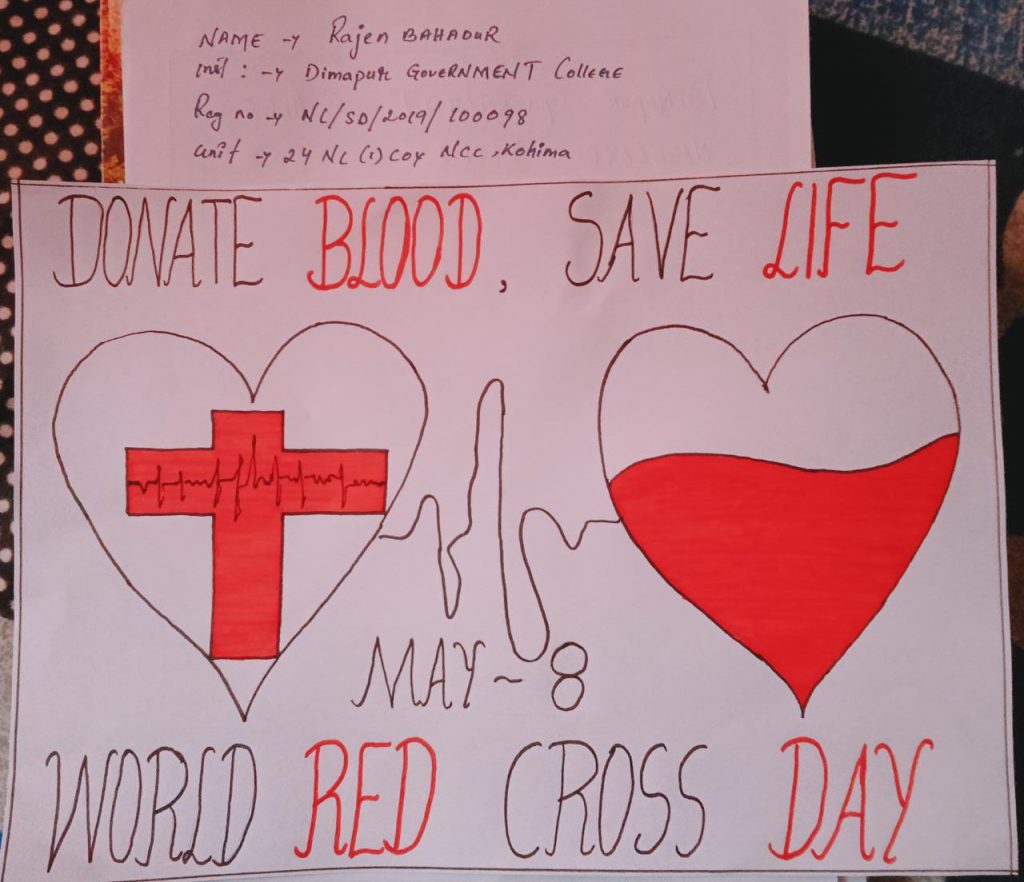 NAME → Rajen BAHADUR
Inst : → Dimapur GOVERNMENT College
Reg no → NL/SD/2019/100098
Unit → 24 NL (I) Coy NCC, Kohima
DONATE BLOOD, SAVE LIFE
MAY ~ 8
WORLD RED CROSS DAY